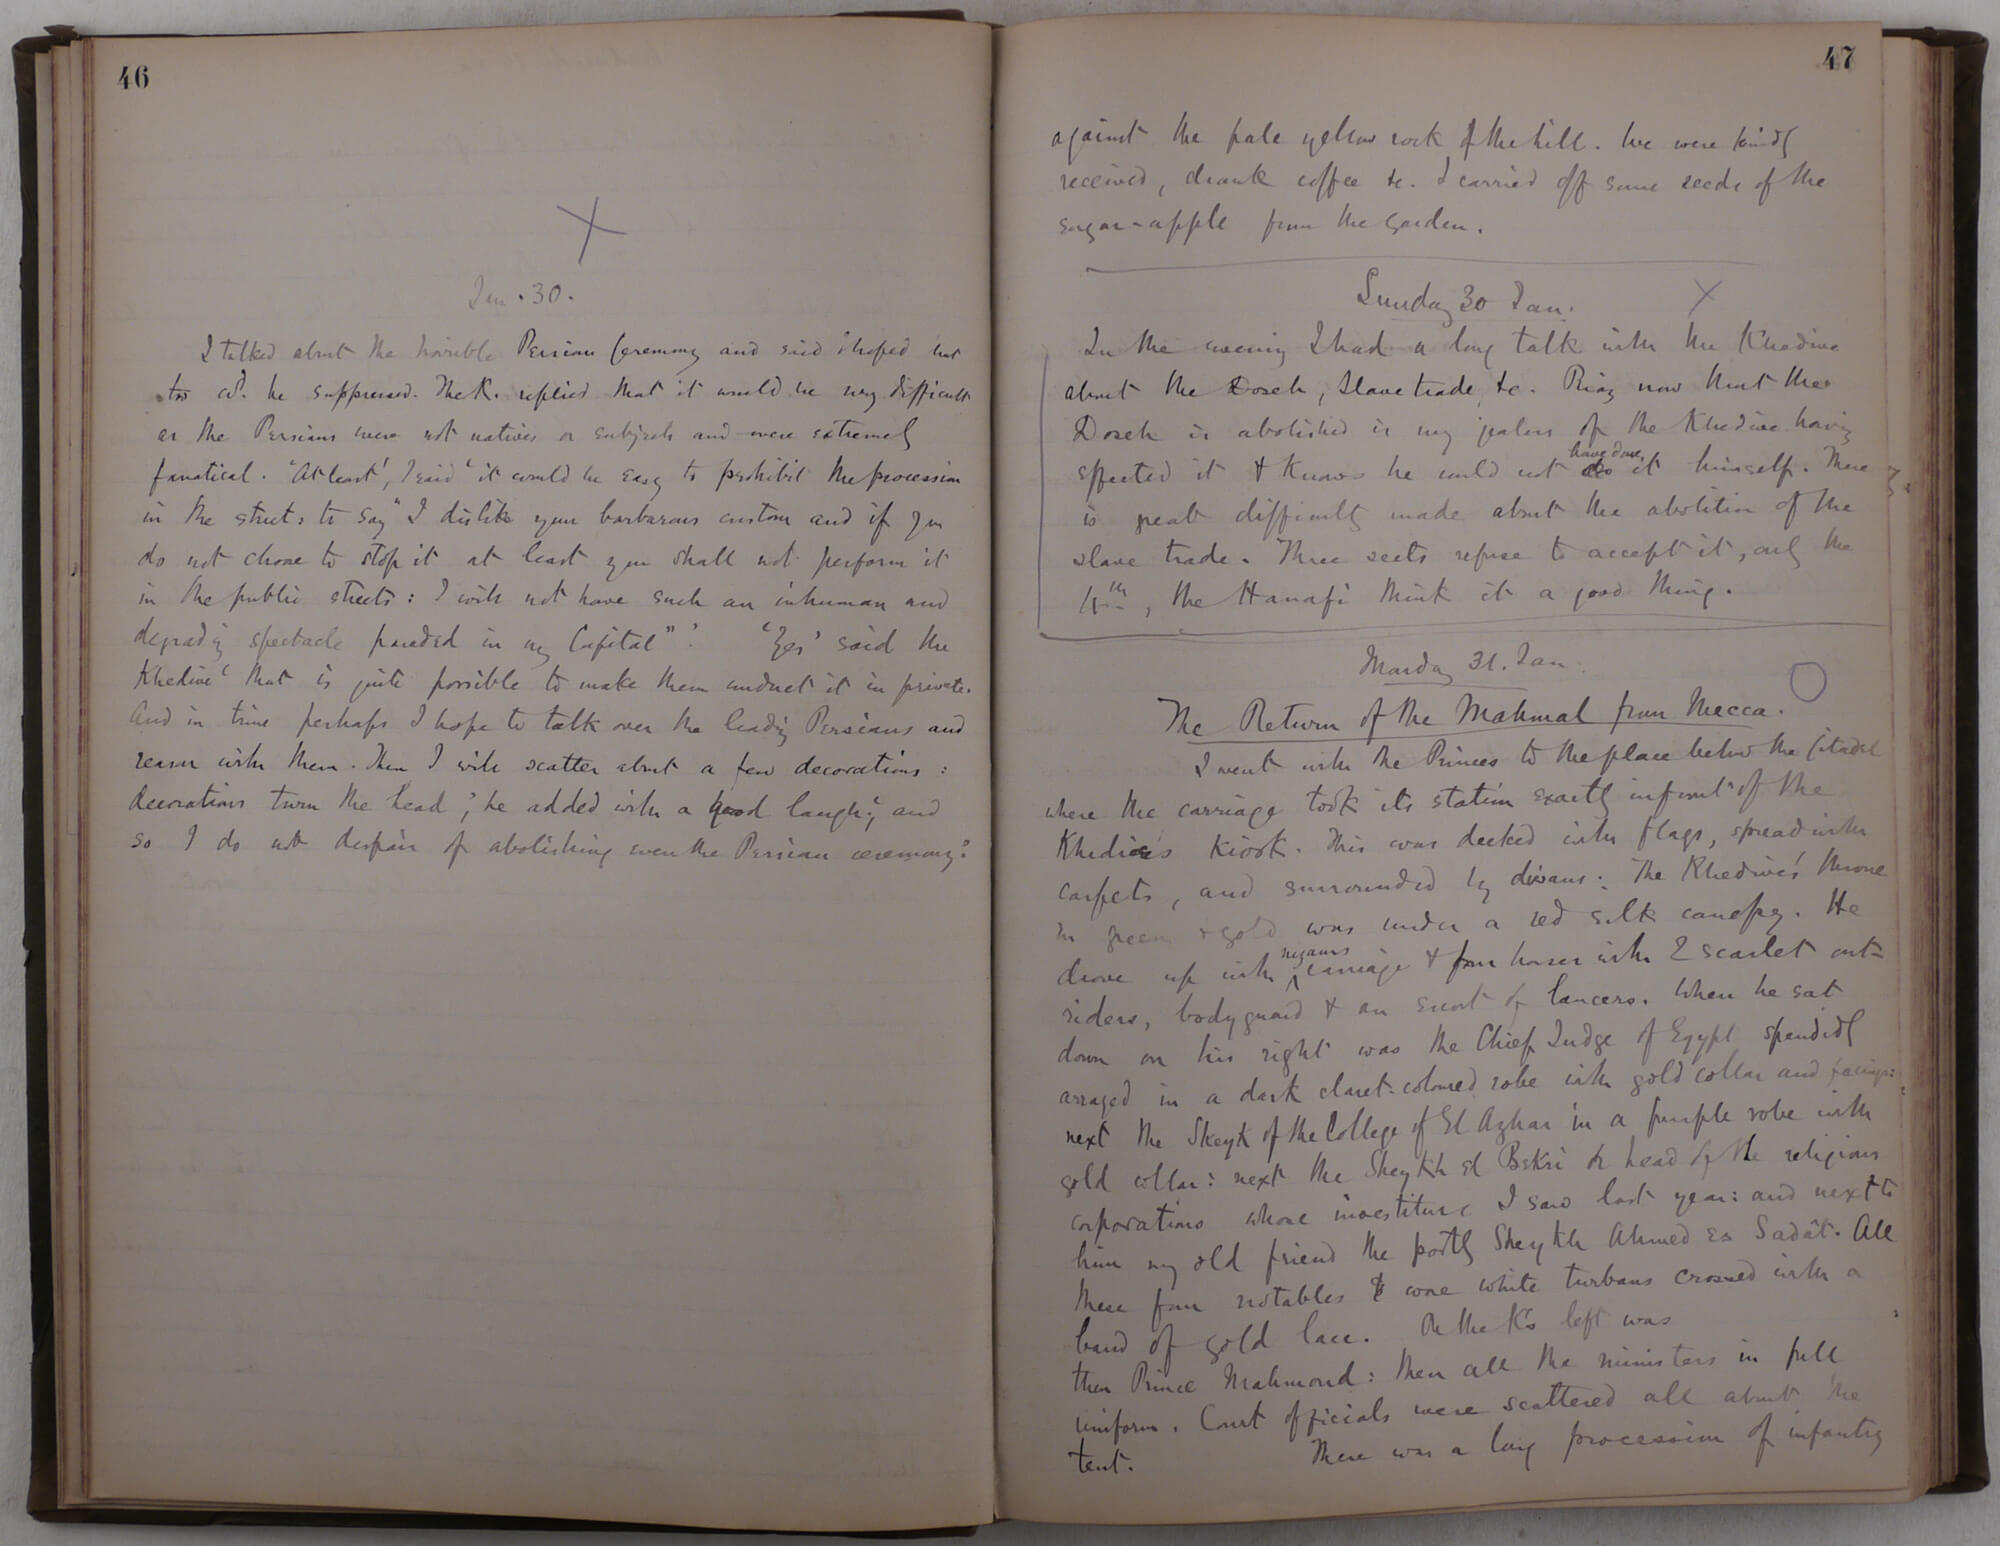 46
Jan. 30.
I talked about the horrible Persian Ceremony and said I hoped that
too cd. be suppressed. The K. replied that it would be very difficult
as the Persians were not natives or subjects and were extremely
fanatical. 'At least', I said 'it would be easy to prohibit the procession
in the street: to say "I dislike your barbarous custom and if you
do not chose to stop it at least you shall not perform it
in the public streets: I will not have such an inhuman and
degrading spectacle paraded in my Capital"'. 'Yes' said the
Khedive 'that is quite possible to make them conduct it in private.
And in time perhaps I hope to talk over the leading Persians and
reason with them. Then I will scatter about a few decorations:
decorations turn the head', he added with a good laugh; 'and
so I do not despair of abolishing even the Persian ceremony.'
47
against the pale yellow rock of the hill. We were kindly
received, drank coffee &c. I carried off some seeds of the
sugar-apple from the garden.
Sunday 30 Jan.
In the evening I had a long talk with the Khedive
about the Doseh, Slave trade, &c. Riaz now that the
Doseh is abolished is very jealous of the Khedive having
effected it & knows he could not have done it himself. There
is great difficulty made about the abolition of the
slave trade. Three sects refuse to accept it, only the
4th, the Hanafi think it a good thing.
Monday 31. Jan.
The Return of the Mahmal from Mecca.
I went with the Princes to the place below the Citadel
where the carriage took its station exactly in front of the
Khedive's Kiosk. This was decked with flags, spread with
carpets, and surrounded by divans: The Khedive's throne
in green & gold was under a red silk canopy. He
drove up with carriage & four horses with 2 scarlet out-
riders, bodyguard & an escort of lancers. When he sat
down on his right was the Chief Judge of Egypt spendidly
arrayed in a dark claret-coloured robe with gold collar and facings:
next the Skeyk of the College of El Azhar in a purple robe with
gold collar: next the Sheykh el Bekri or head of the religious
corporations whose investiture I saw last year: and next to
him my old friend the portly Sheykh Ahmed Es Sadât. All
these four notables wore white turbans crossed with a
band of gold lace. On the K's left was
then Prince Mahmoud: then all the ministers in full
uniform. Court officials were scattered all about the
tent. There was a long procession of infantry